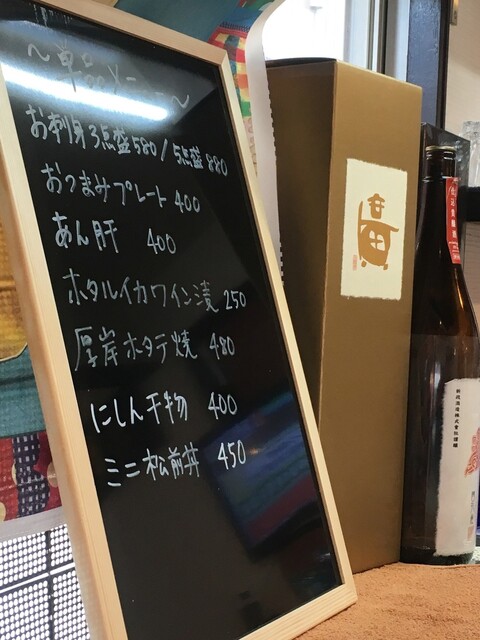 ～単品メニュー～
お刺身3点盛580/5点盛880
おつまみプレート 400
あん肝 400
ホタルイカワイン漬 250
厚岸ホタテ焼 480
にしん干物 400
ミニ松前丼 450
新政酒造株式会社謹醸